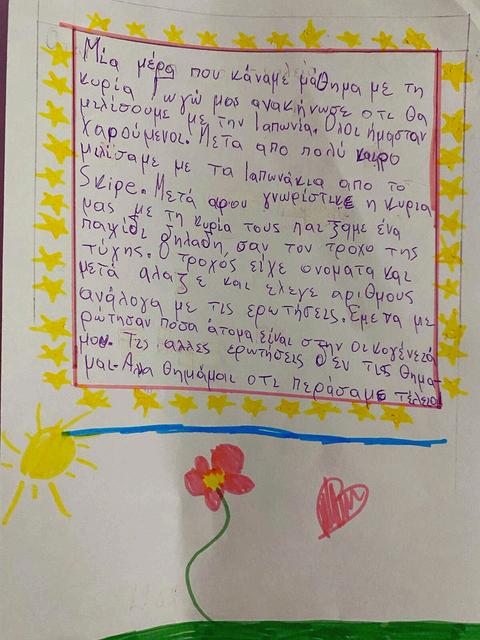 Μία μέρα που κάναμε μάθημα με τη
κυρία Γωγώ μας ανακήνωσε οτι θα
μιλίσουμε με την Ιαπωνία. Όλοι ήμασταν
χαρούμενοι. Μετά απο πολύ καιρο
μιλίσαμε με τα Ιαπωνάκια απο το
Skipe. Μετά αφου γνωρίστικε η κυρία
μας με τη κυρία τους παιξαμε ένα
παιχίδι δηλαδή σαν τον τροχο της
τύχης. Ο τροχός είχε ονοματα και
μετά αλαζε και ελεγε αριθμους
ανάλογα με τις ερωτήσεις. Εμενα με
ρώτησαν ποσα άτομα είναι στην οικογένεια
μου. Τις αλλες ερωτήσεις δεν τις θημα-
μαι. Αλα θημάμαι οτι περάσαμε τέλεια